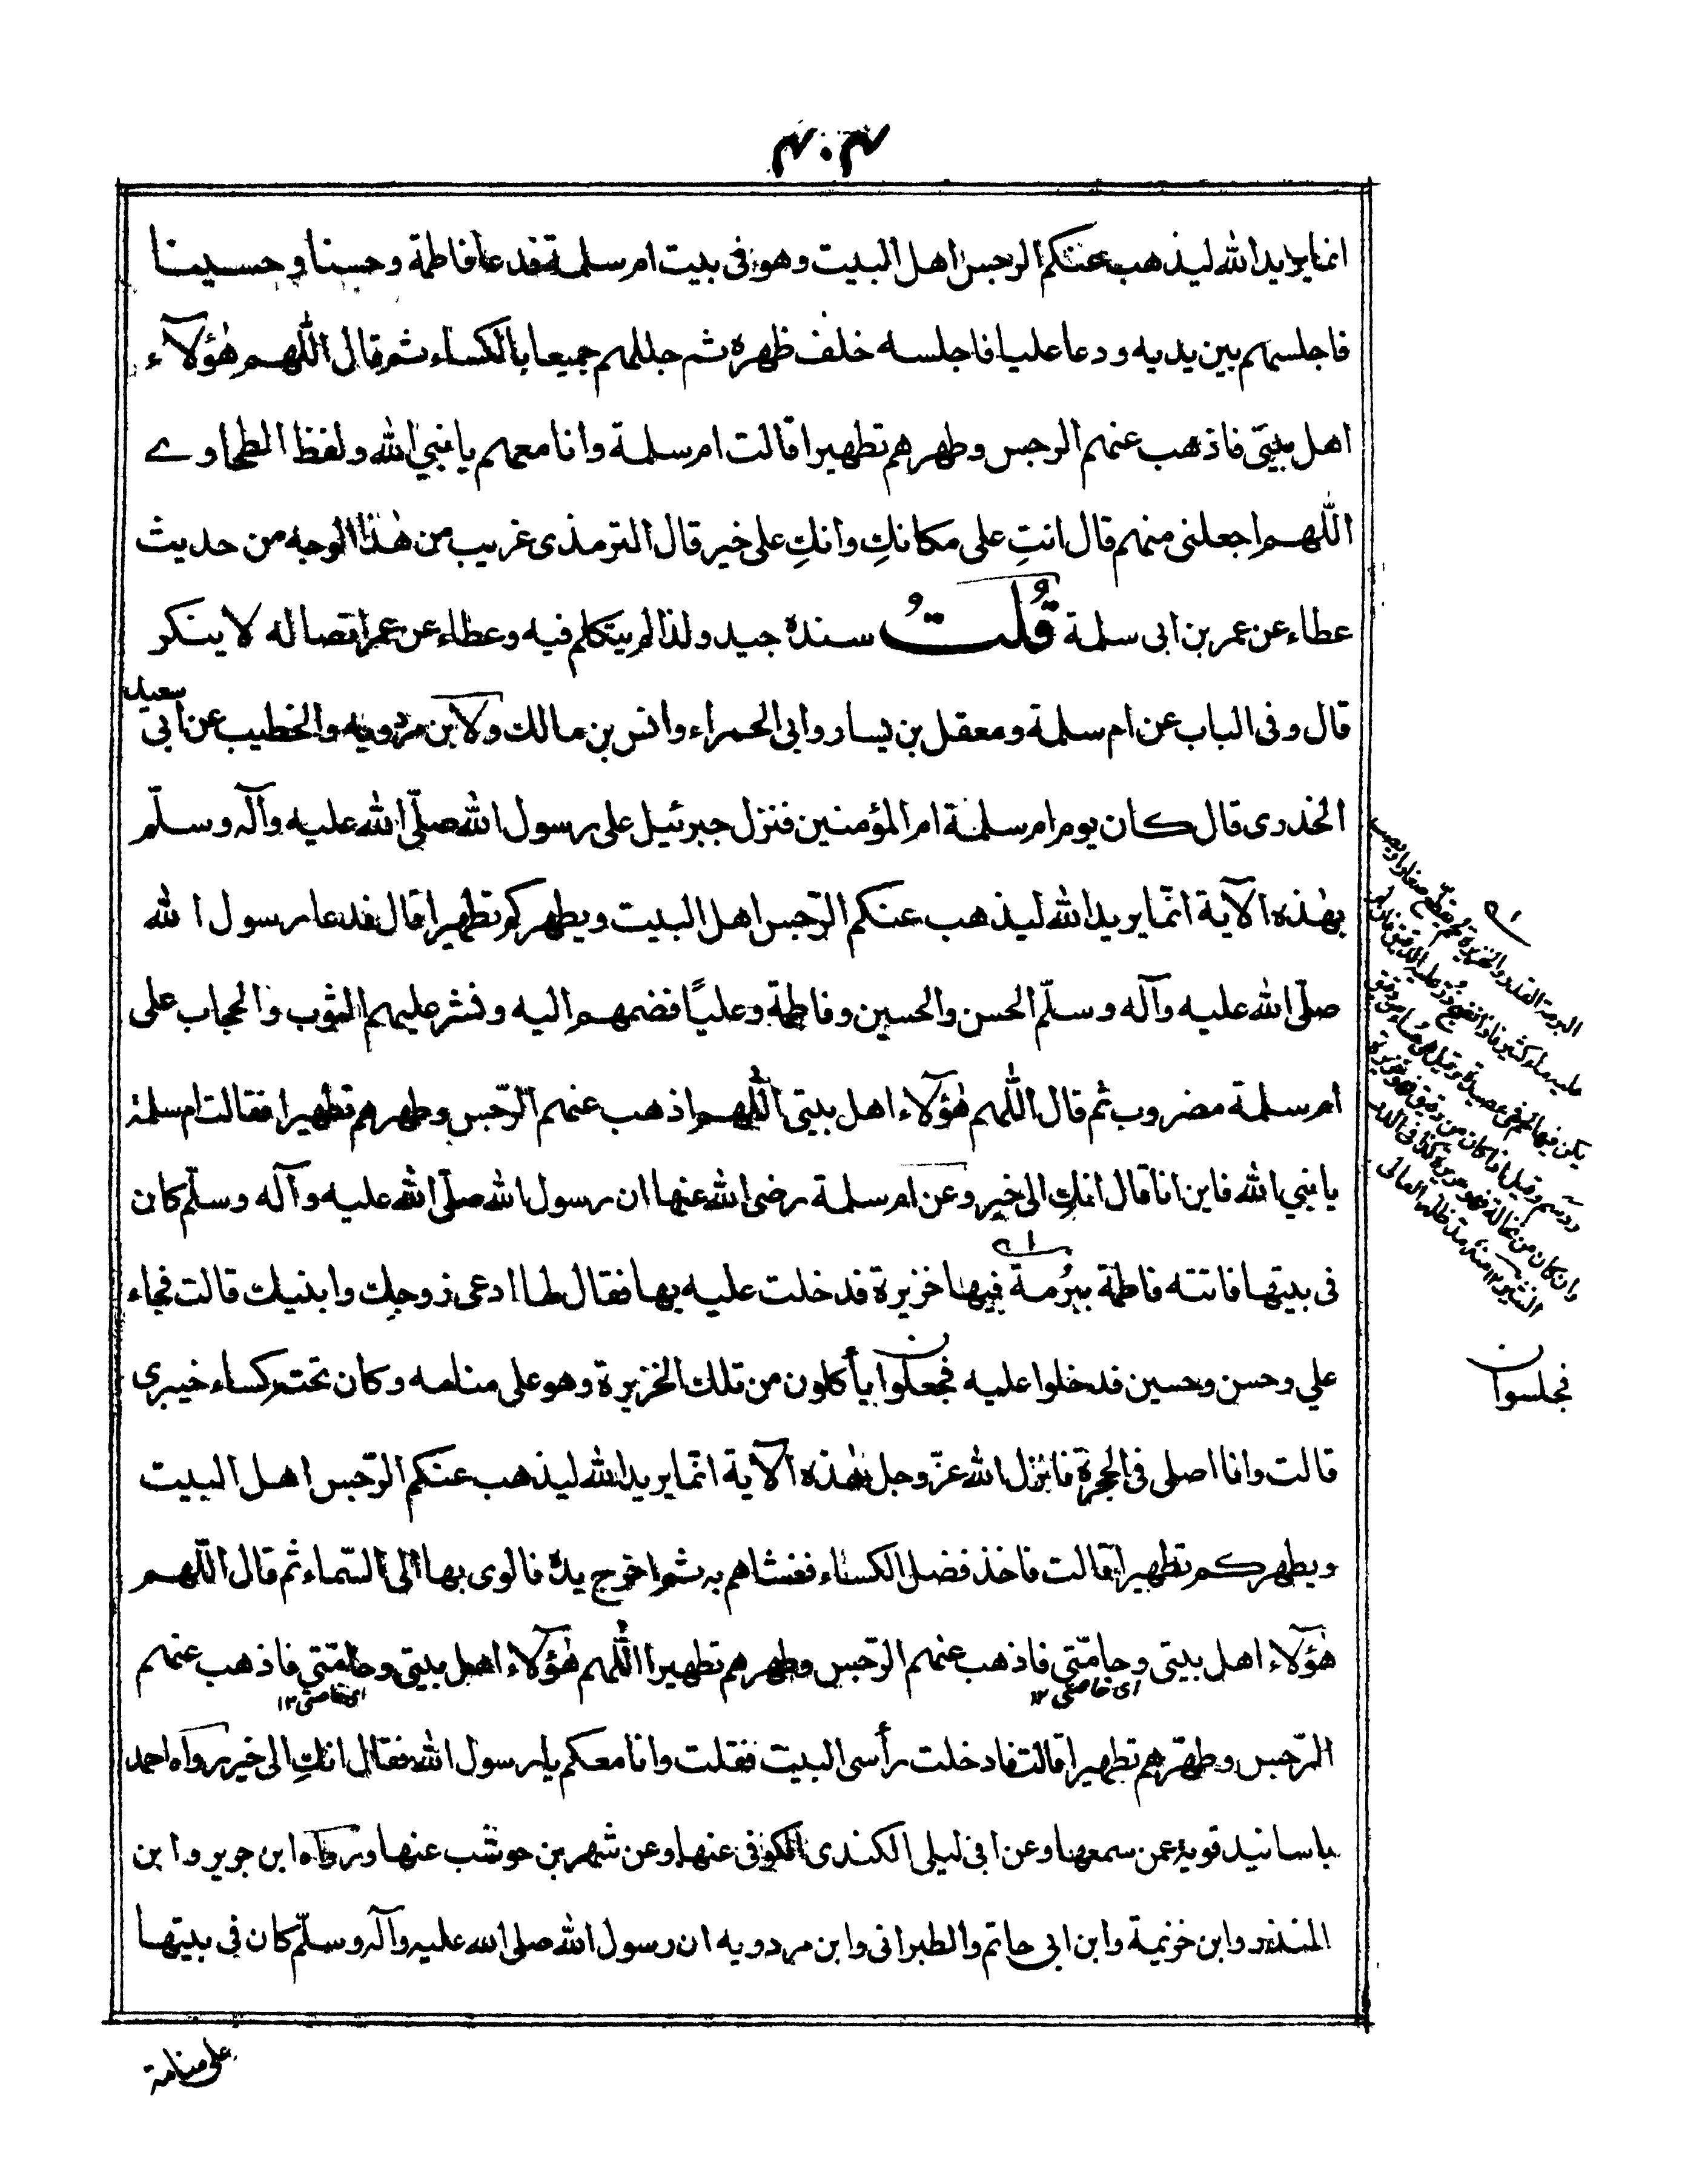 ۴۰۴
انما يريد الله ليذهب عنكم الرجس اهل البيت وهو فى بيت ام سلمة فدعا فاطمة وحسنا وحسينا
فاجلسهم بين يديه ودعا عليا فاجلسه خلف ظهره ثم جللهم جميعا بالكساء ثم قال اللّٰهم هٰؤلآء
اهل بيتى فاذهب عنهم الرجس وطهرهم تطهيرا قالت ام سلمة وانا معهم يا نبي الله ولفظ الطحاوے
اللّٰهم اجعلنى منهم قال انتِ على مكانكِ وانكِ على خير قال الترمذى غريب من هٰذا الوجه من حديث
عطاء عن عمر بن ابى سلمة قُلتُ سنده جيد ولذا لم يتكلم فيه وعطاء عن عمر اتصاله لا ينكر
قال وفى الباب عن ام سلمة ومعقل بن يسار وابى الحمراء وانس بن مالك ولابن مردويه والخطيب عن ابى سعيد
الخدرى قال كان يوم ام سلمة ام المؤمنين فنزل جبرئيل على رسول الله صلّى الله عليه وآله وسلّم
بهٰذه الآية انّما يريد الله ليذهب عنكم الرّجس اهل البيت ويطهركم تطهيرا قال فدعا رسول الله
صلّى الله عليه وآله وسلّم الحسن والحسين وفاطمة وعليًا فضمهم اليه ونشر عليهم الثوب والحجاب على
ام سلمة مضروب ثم قال اللّٰهم هٰؤلآء اهل بيتى اللّٰهم اذهب عنهم الرّجس وطهرهم تطهيرا فقالت ام سلمة
يا نبي الله فاين انا قال انكِ الى خير وعن ام سلمة رضى الله عنها ان رسول الله صلّى الله عليه وآله وسلّم كان
فى بيتها فاتته فاطمة ببُرمة فيها خزيرة فدخلت عليه بها فقال لها ادعى زوجك وابنيك قالت فجاء
علي وحسن وحسين فدخلوا عليه فجعلوا يأكلون من تلك الخزيرة وهو على منامه وكان تحته كساء خيبرى
قالت وانا اصلى فى الحجرة فانزل الله عزّ وجل هٰذه الآية انّما يريد الله ليذهب عنكم الرّجس اهل البيت
ويطهركم تطهيرا قالت فاخذ فضل الكساء فغشاهم به ثم اخرج يده فالوى بها الى السّماء ثم قال اللّٰهم
هٰؤلآء اهل بيتى وحامّتي فاذهب عنهم الرّجس وطهرهم تطهيرا اللّٰهم هٰؤلآء اهل بيتى وحامّتي فاذهب عنهم
اى خاصتى ١٢ اى خاصتى ١٢
الرّجس وطهّرهم تطهيرا قالت فادخلت رأسى البيت فقلت وانا معكم يا رسول الله فقال انكِ الى خير رواه احمد
باسانيد قوية عمن سمعها وعن ابى ليلى الكندى الكوفى عنها وعن شهر بن حوشب عنها ورواه ابن جرير وابن
المنذر وابن خزيمة وابن ابى حاتم والطبرانى وابن مردويه ان رسول الله صلى الله عليه وآله وسلّم كان فى بيتها
على منامة
البرمة القدر والخزيرة لحم يقطع صغارا ويصب
عليه ماء كثير فاذا نضج ذر عليه الدقيق فان لم
يكن فيها لحم فهى عصيدة وقيل هى حساء من دقيق
ودسم وقيل اذا كان من دقيق فهو
وان كان من نخالة فهو خزيرة كذا فى الدر
النثير ١٢ منه مد ظله العالى
فجلسوا ن